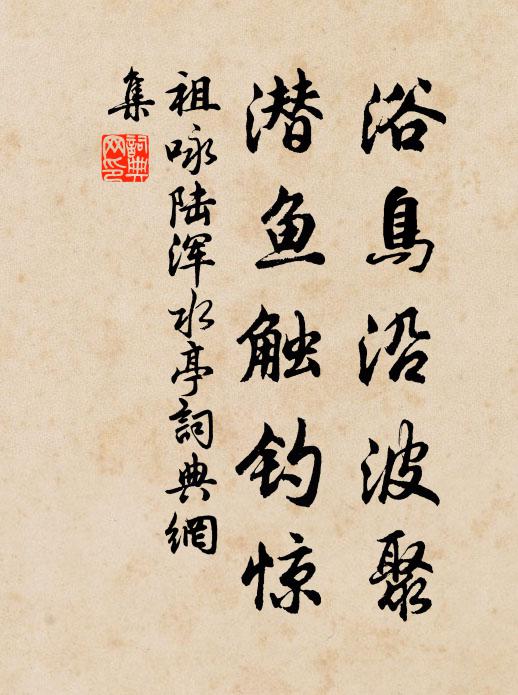 浴鳥沿波聚
潜鱼触钓惊
祖咏陆浑水亭詞典網
集
詞典
网印